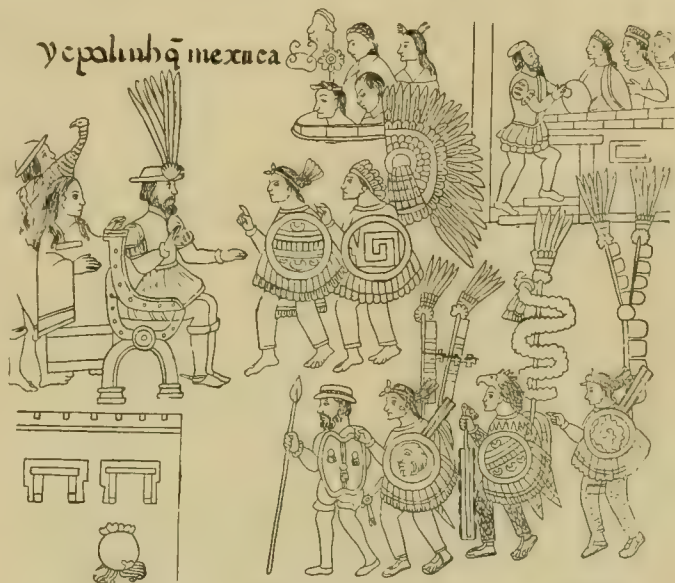 ycpoliuhq̃ mexuca